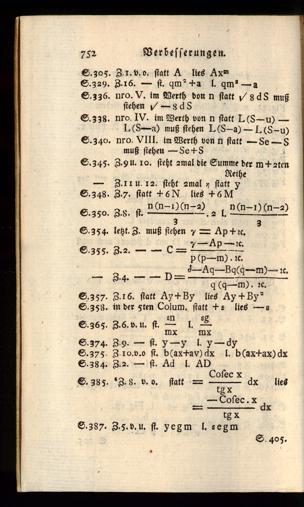 752 Verbesserungen.
S.305. Z.1.v.o. statt A lies Axᵐ
S.329. Z.16. — st. qm² +a l. qm² —a
S.336. nro. V. im Werth von n statt √ 8 d S muß
stehen √ —8 d S
S.338. nro. IV. im Werth von n statt L(S—u) —
L(S—a) muß stehen L(S—a) — L(S—u)
S.340. nro. VIII. im Werth von n statt —Se—S
muß stehen —Se+S
S.345. Z.9 u. 10. steht 2mal die Summe der m+2ten
Reihe
— Z.11 u. 12. steht 2mal η statt y
S.348. Z.7. statt +6N lies +6M
S.350. Z.8. st. n(n-1)(n-2)/3 . 2 l. n(n-1)(n-2)/3
S.354. letzt. Z. muß stehen γ = Ap+ꝛc.
S.355. Z.2. — — C = γ—Ap—ꝛc. / p(p—m). ꝛc.
— Z.4. — — D = δ—Aq—Bq(q—m)—ꝛc. / q(q—m). ꝛc.
S.357. Z.16. statt Ay+By lies Ay+By²
S.358. in der 5ten Colum. statt +s lies —s
S.365. Z.6.v.u. st. sn/mx l. sg/mx
S.374. Z.9. — st. y—y l. y—dy
S.375. Z.10.v.o st. b(ax+av) dx l. b(ax+ax) dx
S.384. Z.2. — st. Ad l. AD
S.385. Z.8. v.o. statt = Cosec x / tg x dx lies
= —Cosec. x / tg x dx
S.387. Z.5.v.u. st. yegm l. segm
S.405.